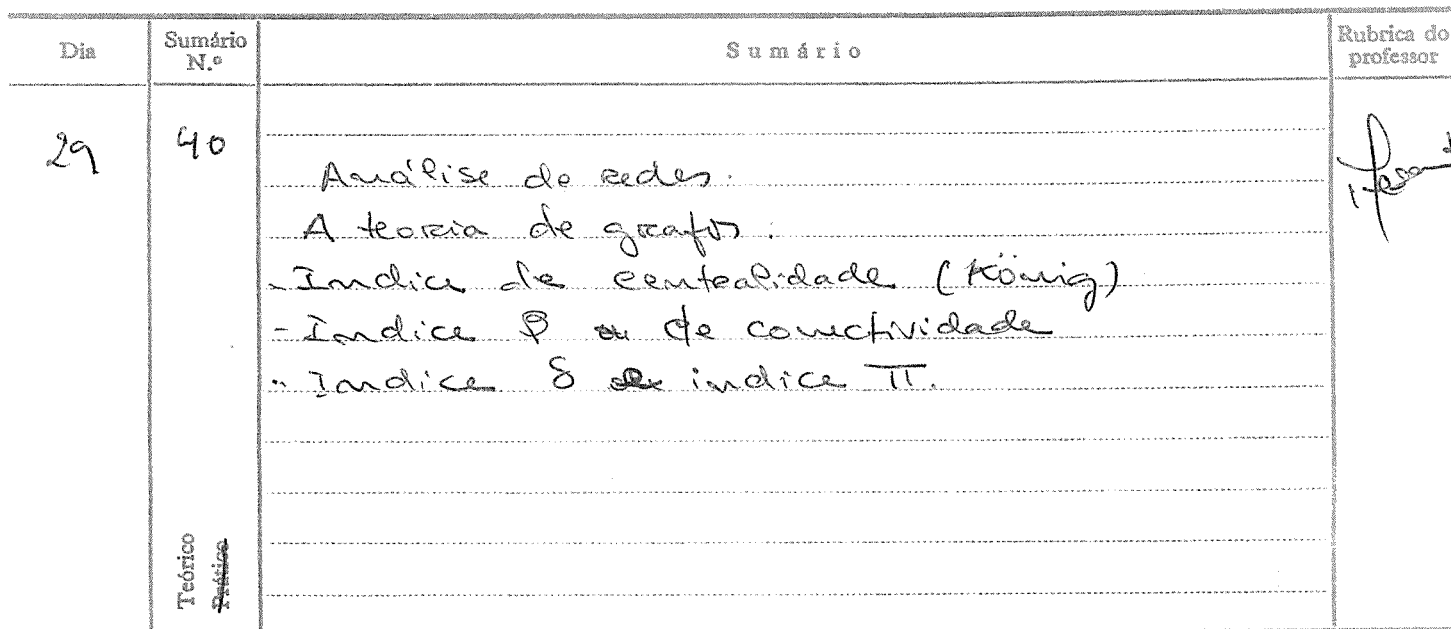 Dia
Sumário N.º
Sumário
Rubrica do professor
29
40
Análise de redes.
A teoria de grafos.
- Indice de centralidade (König)
- Indice β de conectividade
- Indice δ indice π.
Teórico
Prático